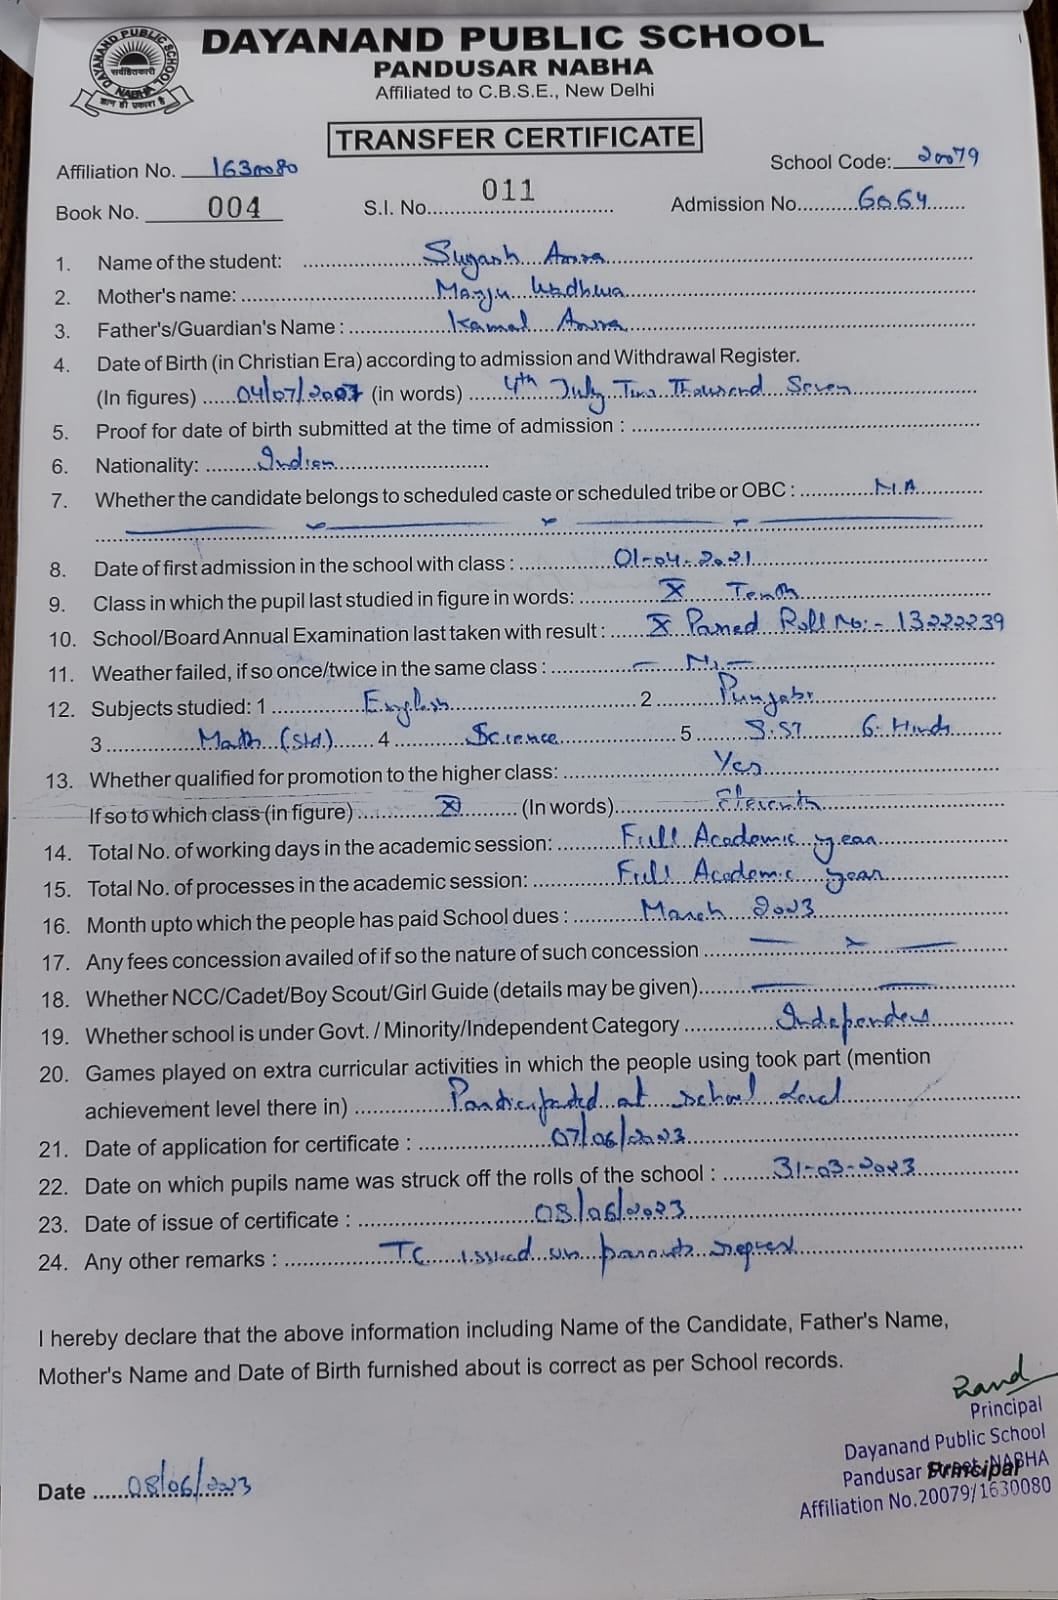 DAYANAND PUBLIC SCHOOL NABHA
सर्वहितकारी
DAYANAND PUBLIC SCHOOL
PANDUSAR NABHA
Affiliated to C.B.S.E., New Delhi
TRANSFER CERTIFICATE
Affiliation No. 1630080
School Code: 20079
Book No. 004
S.I. No. 011
Admission No. 6064
1. Name of the student:
2. Mother's name: Manju Wadhwa
3. Father's/Guardian's Name : Kamal
4. Date of Birth (in Christian Era) according to admission and Withdrawal Register.
(In figures) 04/07/2007 (in words) 4th July Two Thousand Seven
5. Proof for date of birth submitted at the time of admission :
6. Nationality: Indian
7. Whether the candidate belongs to scheduled caste or scheduled tribe or OBC : N.A
8. Date of first admission in the school with class : 01-04-2021
9. Class in which the pupil last studied in figure in words: X Tenth
10. School/Board Annual Examination last taken with result : X Passed Roll No:- 13222239
11. Weather failed, if so once/twice in the same class :
12. Subjects studied: 1 English 2 Punjabi
3 Math (Std.) 4 Science 5 S.ST 6. Hindi
13. Whether qualified for promotion to the higher class: Yes
If so to which class (in figure) XI (In words) Eleventh
14. Total No. of working days in the academic session: Full Academic year
15. Total No. of processes in the academic session: Full Academic year
16. Month upto which the people has paid School dues : March 2023
17. Any fees concession availed of if so the nature of such concession
18. Whether NCC/Cadet/Boy Scout/Girl Guide (details may be given)
19. Whether school is under Govt. / Minority/Independent Category Independent
20. Games played on extra curricular activities in which the people using took part (mention
achievement level there in) Participated at school Level
21. Date of application for certificate : 07/06/2023
22. Date on which pupils name was struck off the rolls of the school : 31-03-2023
23. Date of issue of certificate : 08/06/2023
24. Any other remarks : TC issued on parents request
I hereby declare that the above information including Name of the Candidate, Father's Name,
Mother's Name and Date of Birth furnished about is correct as per School records.
Principal
Dayanand Public School
Pandusar Street, NABHA
Principal
Affiliation No.20079/1630080
Date 08/06/2023